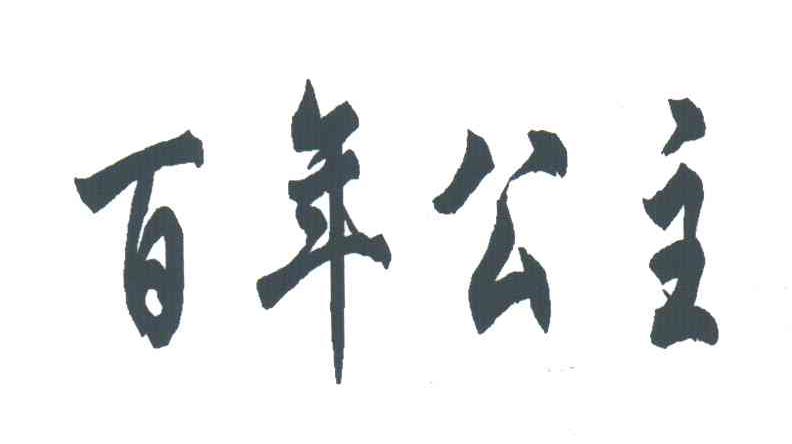 百年公主